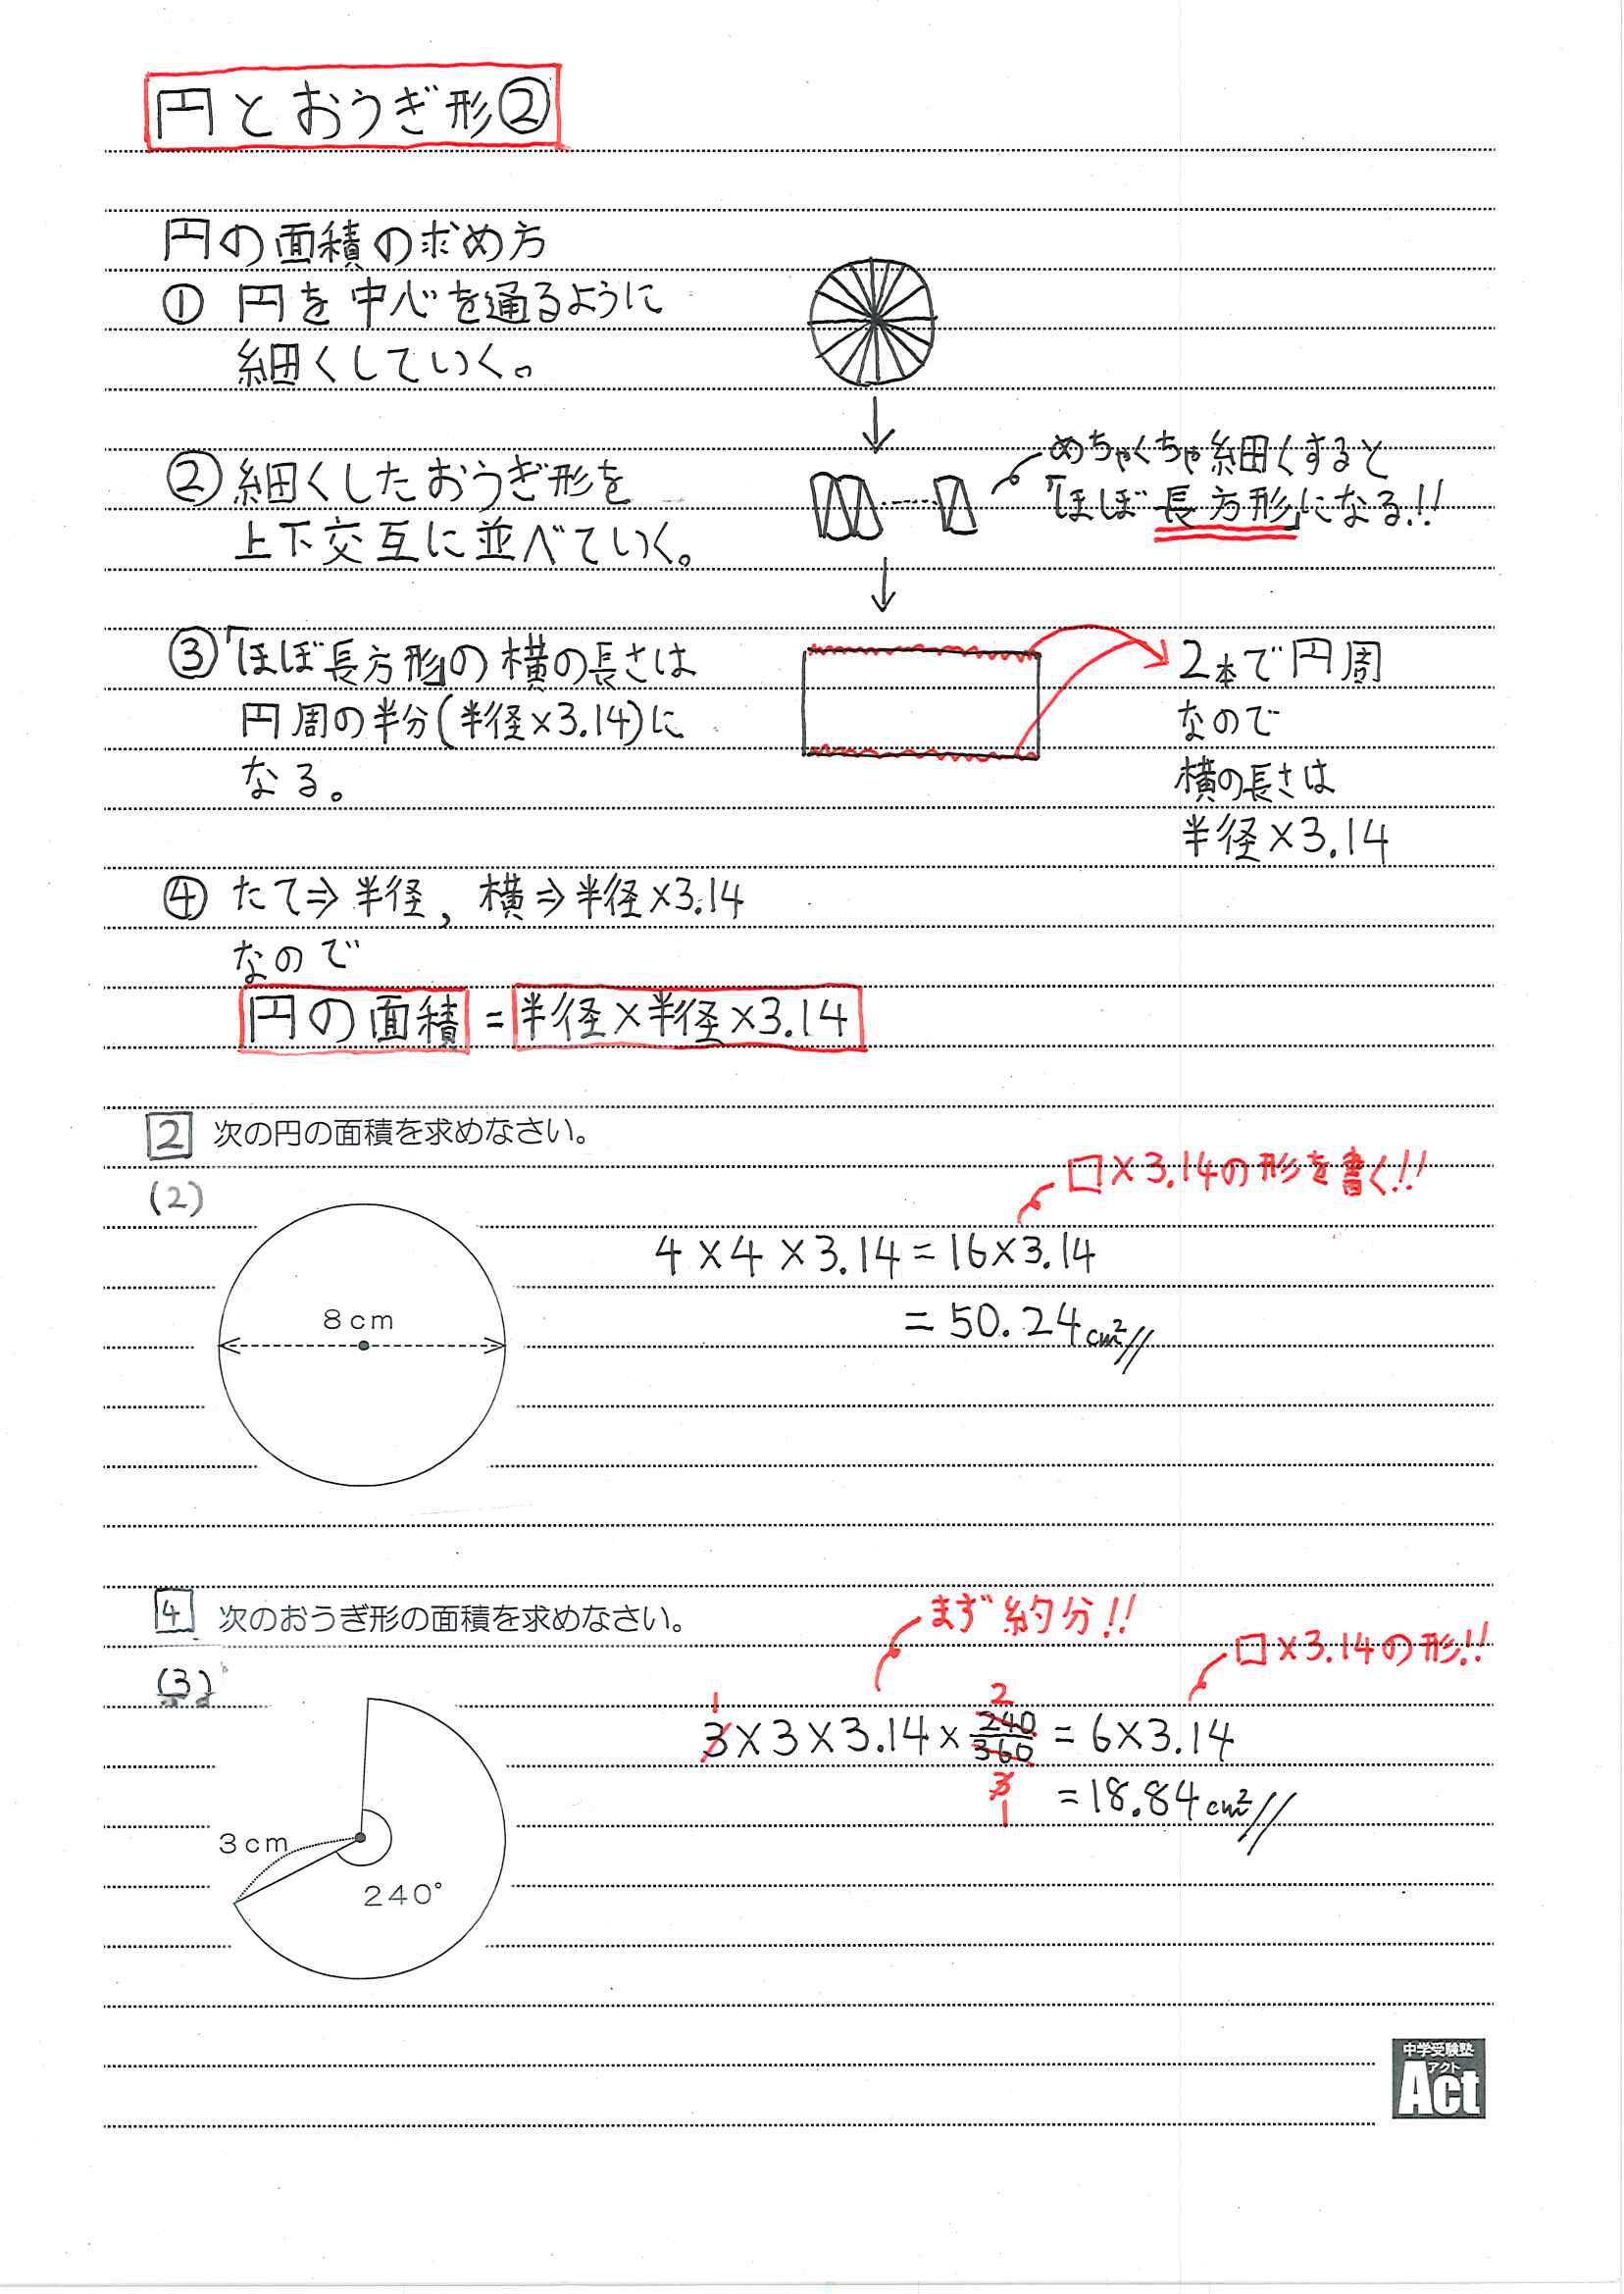 円とおうぎ形②
円の面積の求め方
① 円を中心を通るように
細くしていく。
②細くしたおうぎ形を
上下交互に並べていく。
めちゃくちゃ細くすると
「ほぼ長方形」になる!!
③「ほぼ長方形」の横の長さは
円周の半分(半径×3.14)に
なる。
2本で円周
なので
横の長さは
半径×3.14
④ たて⇒半径, 横⇒半径×3.14
なので
円の面積 = 半径×半径×3.14
2 次の円の面積を求めなさい。
(2)
□×3.14の形を書く!!
4×4×3.14=16×3.14
=50.24cm²
8cm
4 次のおうぎ形の面積を求めなさい。
まず約分!!
(3)
□×3.14の形!!
1 2
3×3×3.14×240/360=6×3.14
3
1
=18.84cm²
3cm
240°
中学受験塾
アクト
Act